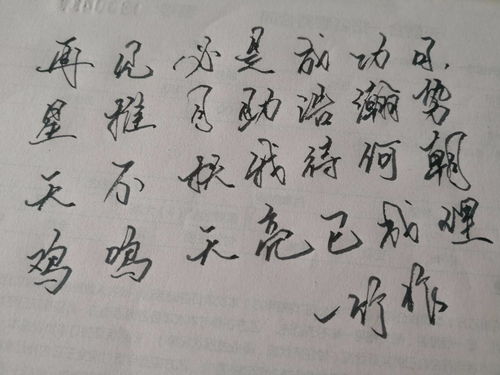 再见必是成功示
星推月助浩瀚势
天不扶我待何朝
鸡鸣天亮已成理
一竹作